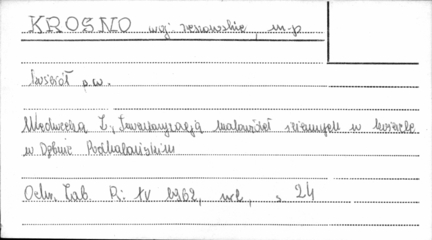 KROSNO woj. rzeszowskie, m-p
Kościół p.w.
Mędwecka Z., Inwentaryzacja malowideł ściennych w kościele
w Dębnie Podhalańskim
Ochr. Zab. R: XV 1962, nr 2, s. 24